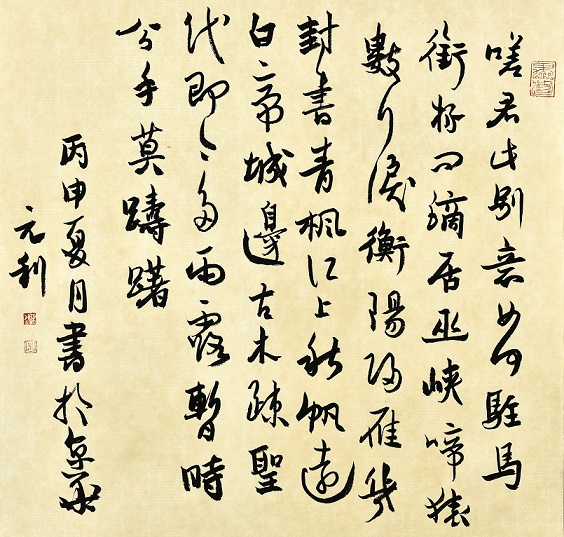 嗟君此別意如何駐馬
銜杯問謫居巫峽啼猿
數行淚衡陽歸雁幾
封書青楓江上秋帆遠
白帝城邊古木疎聖
代即今多雨露暫時
分手莫躊躇
丙申夏月書於京華
元利